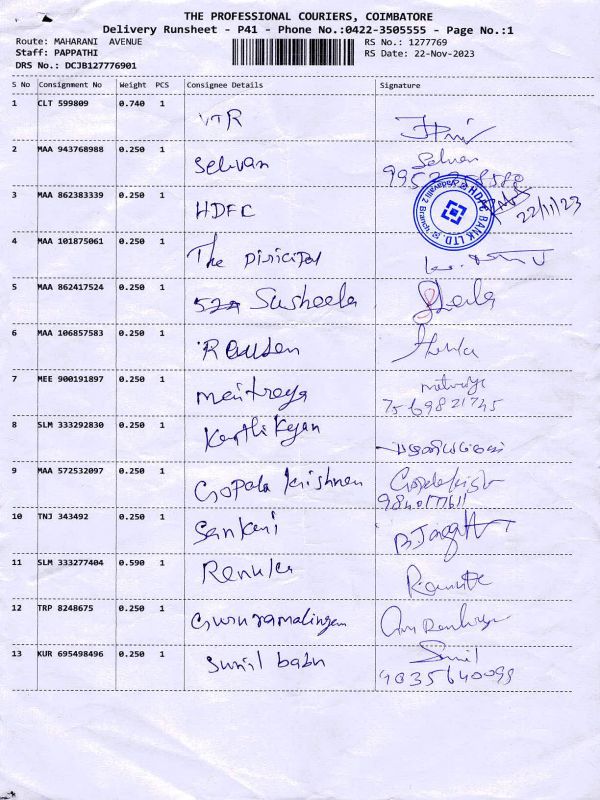 THE PROFESSIONAL COURIERS, COIMBATORE
Delivery Runsheet - P41 - Phone No.:0422-3505555 - Page No.:1
Route: MAHARANI AVENUE RS No.: 1277769
Staff: PAPPATHI RS Date: 22-Nov-2023
DRS No.: DCJB127776901
S No Consignment No Weight PCS Consignee Details Signature
1 CLT 599809 0.740 1
2 MAA 943768988 0.250 1 Selvan Selvan
3 MAA 862383339 0.250 1 HDFC HDFC BANK LTD. 22/11/23
4 MAA 101875061 0.250 1 The
5 MAA 862417524 0.250 1 Susheela
6 MAA 106857583 0.250 1
7 MEE 900191897 0.250 1 Maitreya
7569821745
8 SLM 333292830 0.250 1 Karthikeyan
9 MAA 572532097 0.250 1 Gopala krishnan
10 TNJ 343492 0.250 1
11 SLM 333277404 0.590 1 Renuka
12 TRP 8248675 0.250 1 Gururamalingam
13 KUR 695498496 0.250 1 Sunil babu Sunil